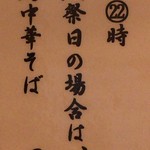 ㉒時
祭日の場合は、
中華そば